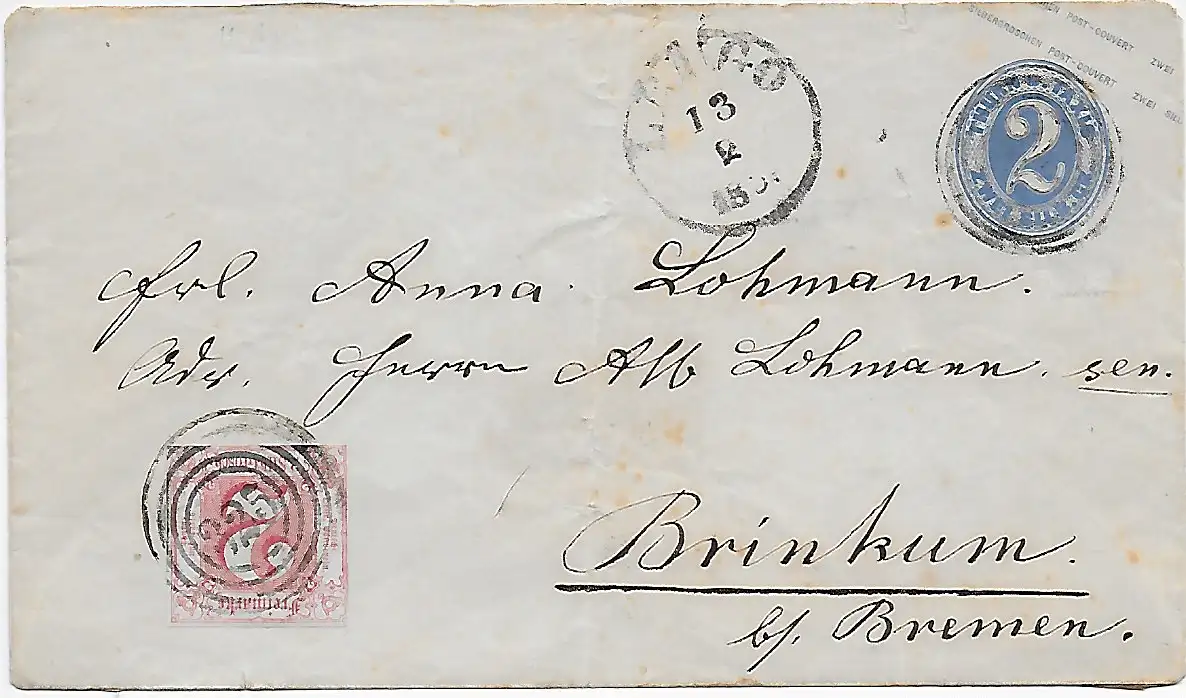 SILBERGROSCHEN POST-COUVERT ZWEI SILB
POST-COUVERT ZWEI
LEMGO
13
2
2
Frl. Anna Lohmann.
Adr. Herrn Alb Lohmann. sen.
225
Freimarke
Brinkum.
b/. Bremen.